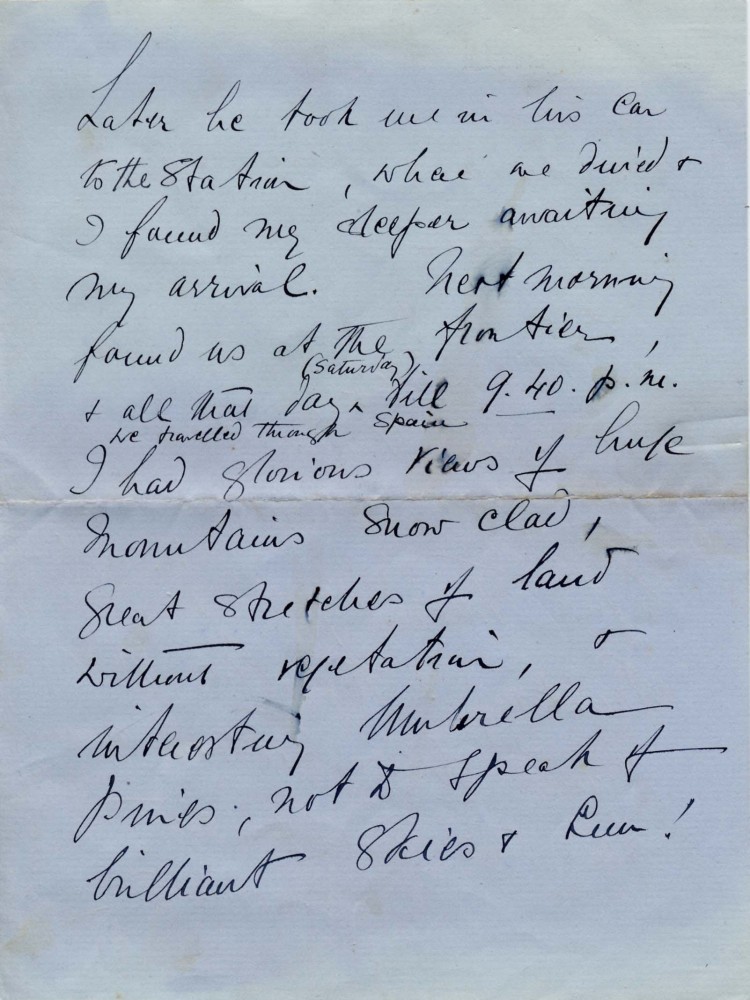 Later he took me in his car
to the Station, where we dined &
I found my sleeper awaiting
my arrival. Next morning
found us at the frontier,
(Saturday)
& all that day ^ till 9.40. p.m.
we travelled through Spain
I had glorious views of huge
Mountains snow clad,
Great stretches of land
without vegetation, &
interesting Umbrella
Pines, not to speak of
brilliant skies & Sun!